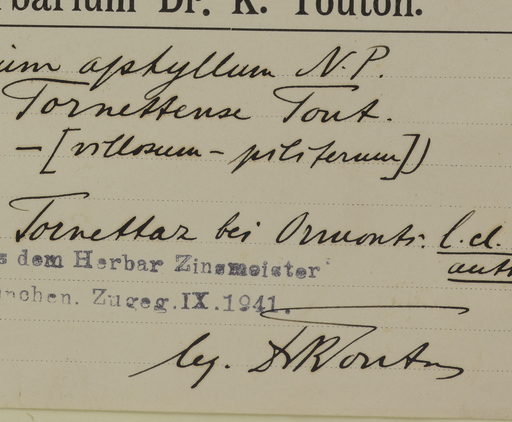 rbarium Dr. K. Touton.
ium aphyllum N.P.
Tornettense Tout.
– [villosum – piliferum])
Tornettaz bei Ormonts: l. cl.
s dem Herbar Zinsmeister
auth
nchen. Zugeg. IX. 1941.
leg. Dr KTouton